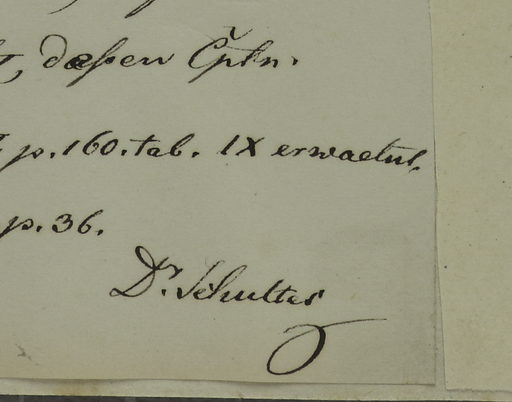 daßen
p. 160. tab. IX erwaetnt,
p. 36.
Dr. Schultes